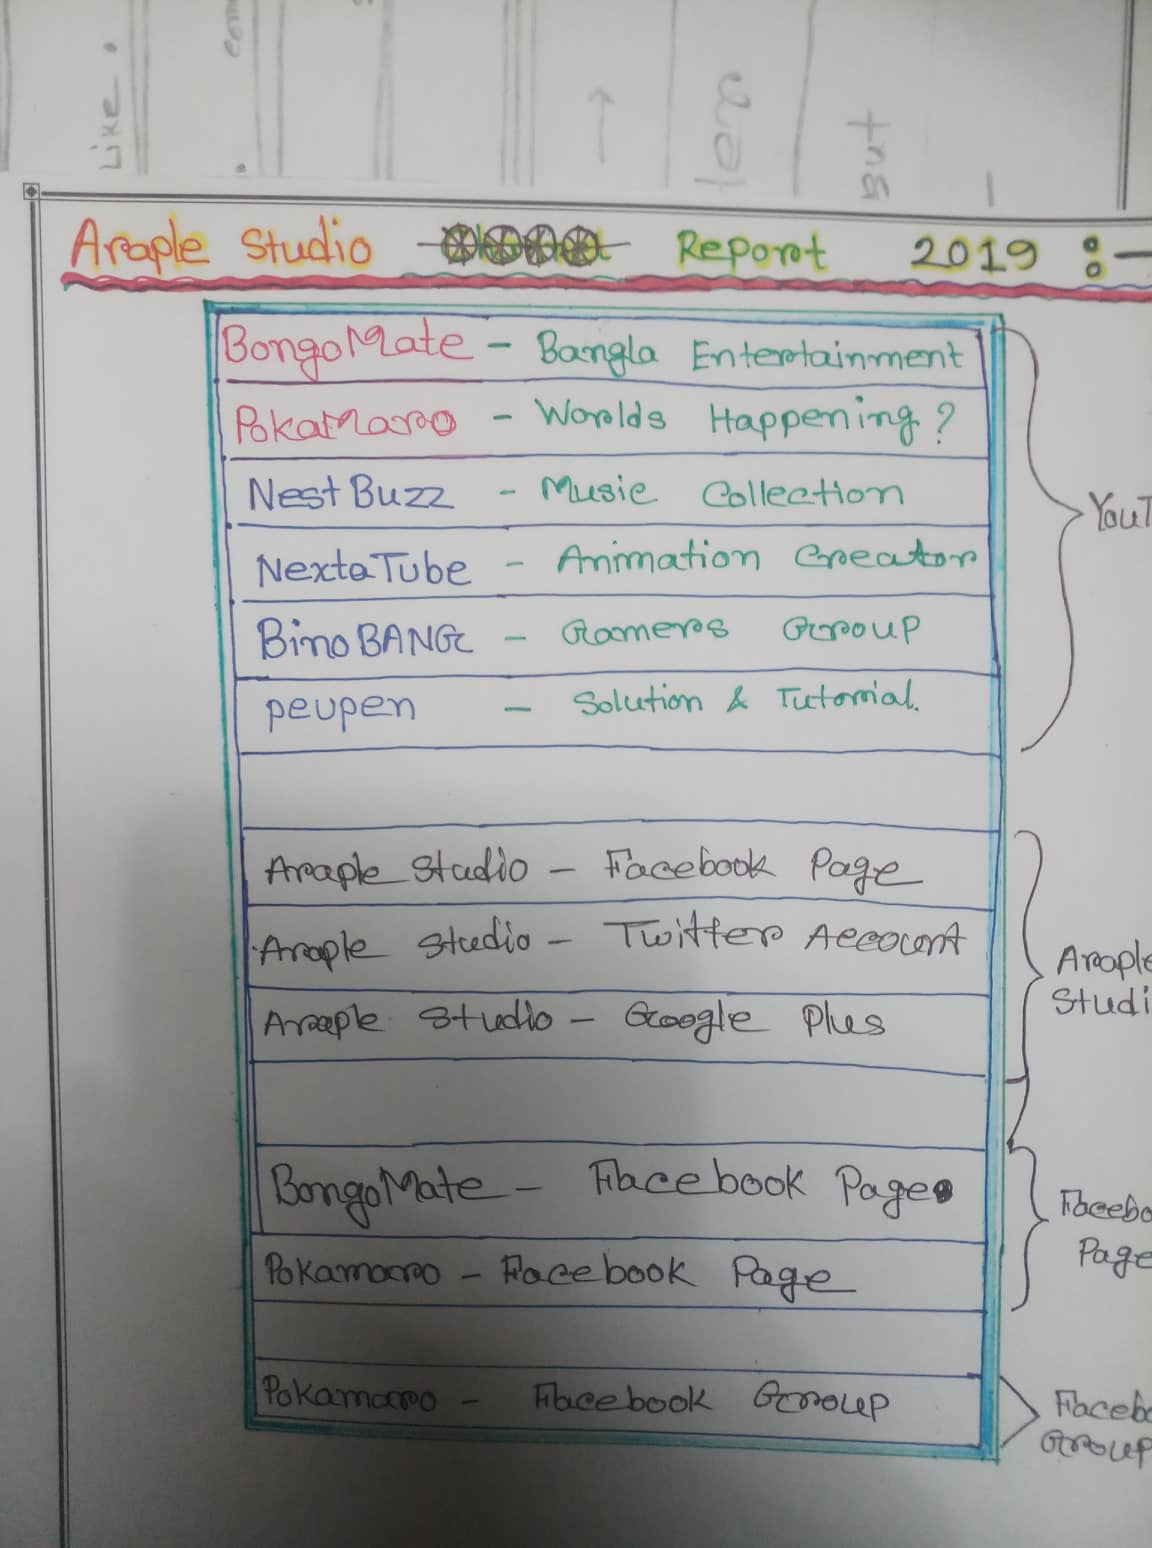 Like .
com
→
ter
But
Araple Studio Report 2019 :-
BongoMate - Bangla Entertainment
PokaMaro - Worlds Happening?
NestBuzz - Music Collection
NextaTube - Animation Creator
BinoBANG - Gamers Group
peupen - Solution & Tutorial.
YouT
Araple Studio - Facebook Page
Araple Studio - Twitter Account
Araple Studio - Google Plus
Araple
Studi
BongoMate - Facebook Page
Pokamaro - Facebook Page
Facebo
Page
Pokamaro - Facebook Group
Faceb
Group